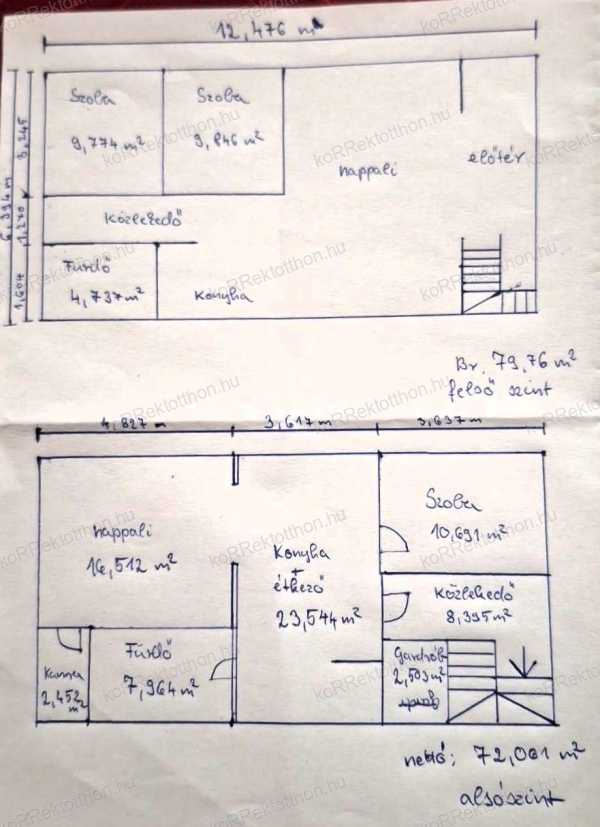 12,476 m
Szoba
Szoba
9,774 m²
9,846 m²
nappali
előtér
3,245
6,394 m
1,270
1,604
Közlekedő
Fürdő
4,737 m²
Konyha
Br. 79,76 m²
felső szint
4,827 m
3,617 m
3,637 m
nappali
16,512 m²
Konyha
+
étkező
23,544 m²
Szoba
10,691 m²
Közlekedő
8,395 m²
Gardrób
2,503 m²
Kamra
2,452 m²
Fürdő
7,964 m²
nettó: 72,061 m²
alsószint
koRRektotthon.hu